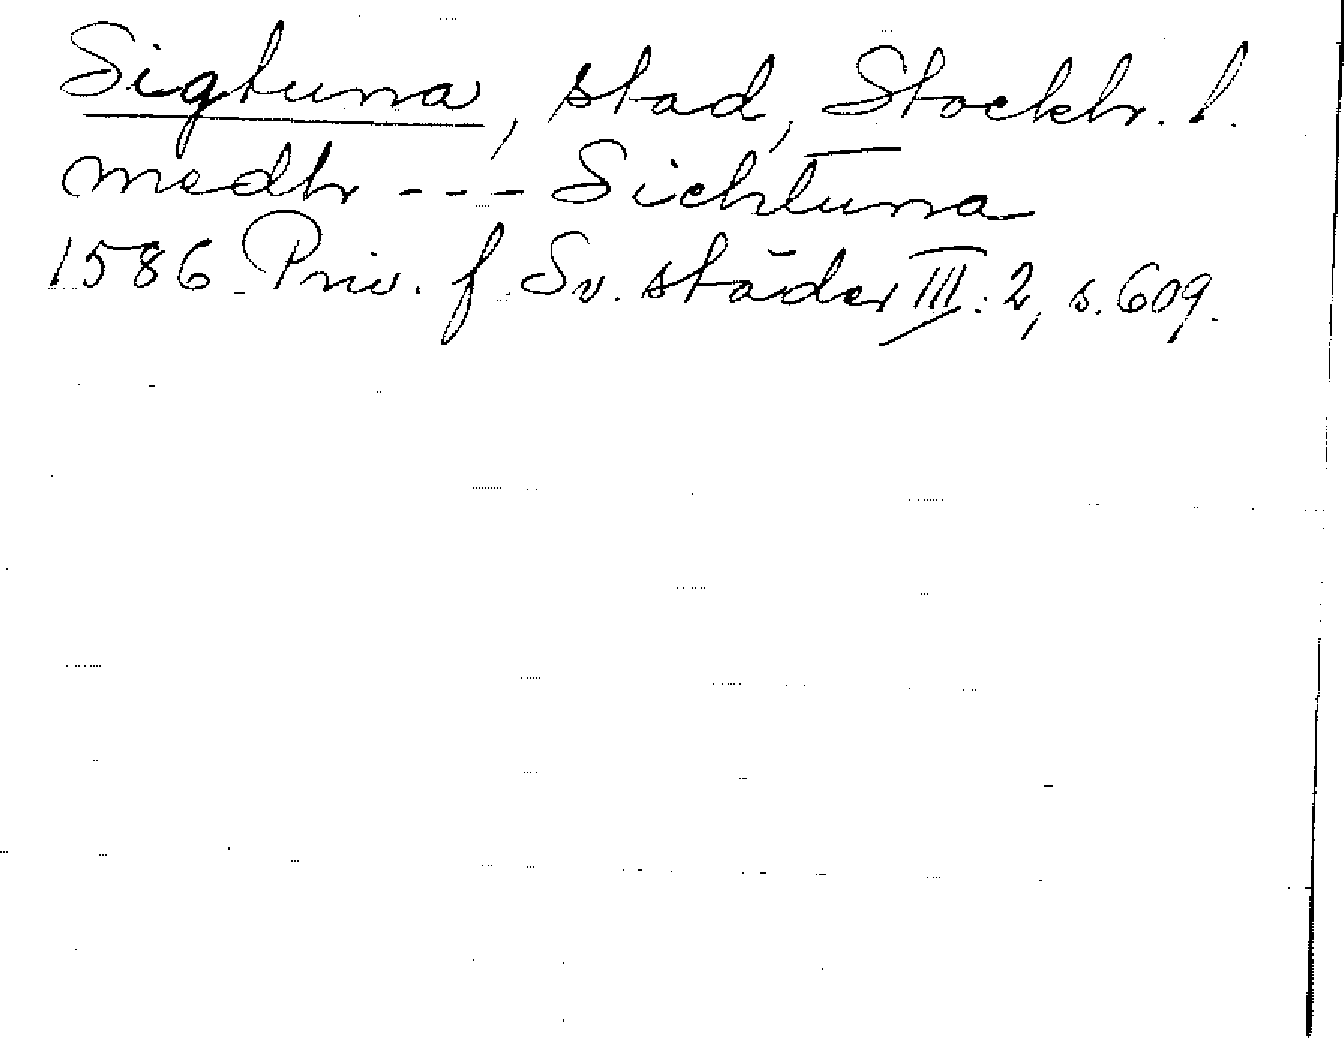 Sigtuna, stad, Stockh. l.
medh --- Sichtuna
1586 Priv. f. Sv. städer III: 2, s. 609.